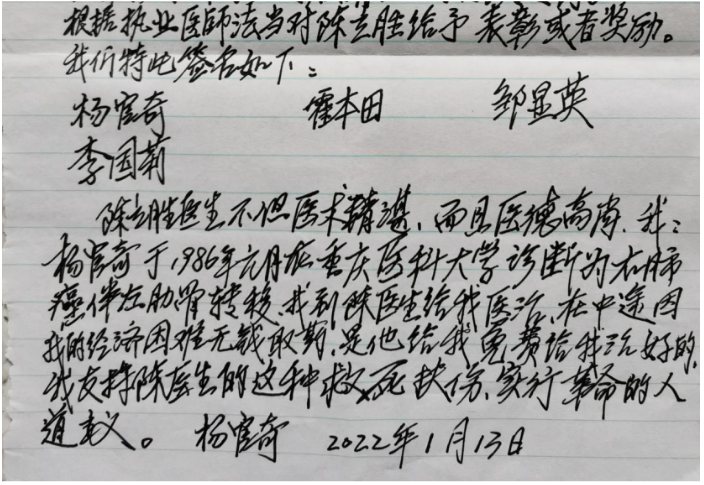 根据执业医师法当对陈立胜给予表彰或者奖励。
我们特此签名如下：
杨官奇 霍本田 邹显英
李国菊
陈立胜医生不但医术精湛，而且医德高尚。我：
杨官奇于1986年元月在重庆医科大学诊断为右肺
癌伴左肋骨转移，找到陈医生给我医治，在中途因
我的经济困难无钱取药，是他给我免费给我治好的，
我支持陈医生的这种救死扶伤、实行革命的人
道主义。 杨官奇 2022年1月13日